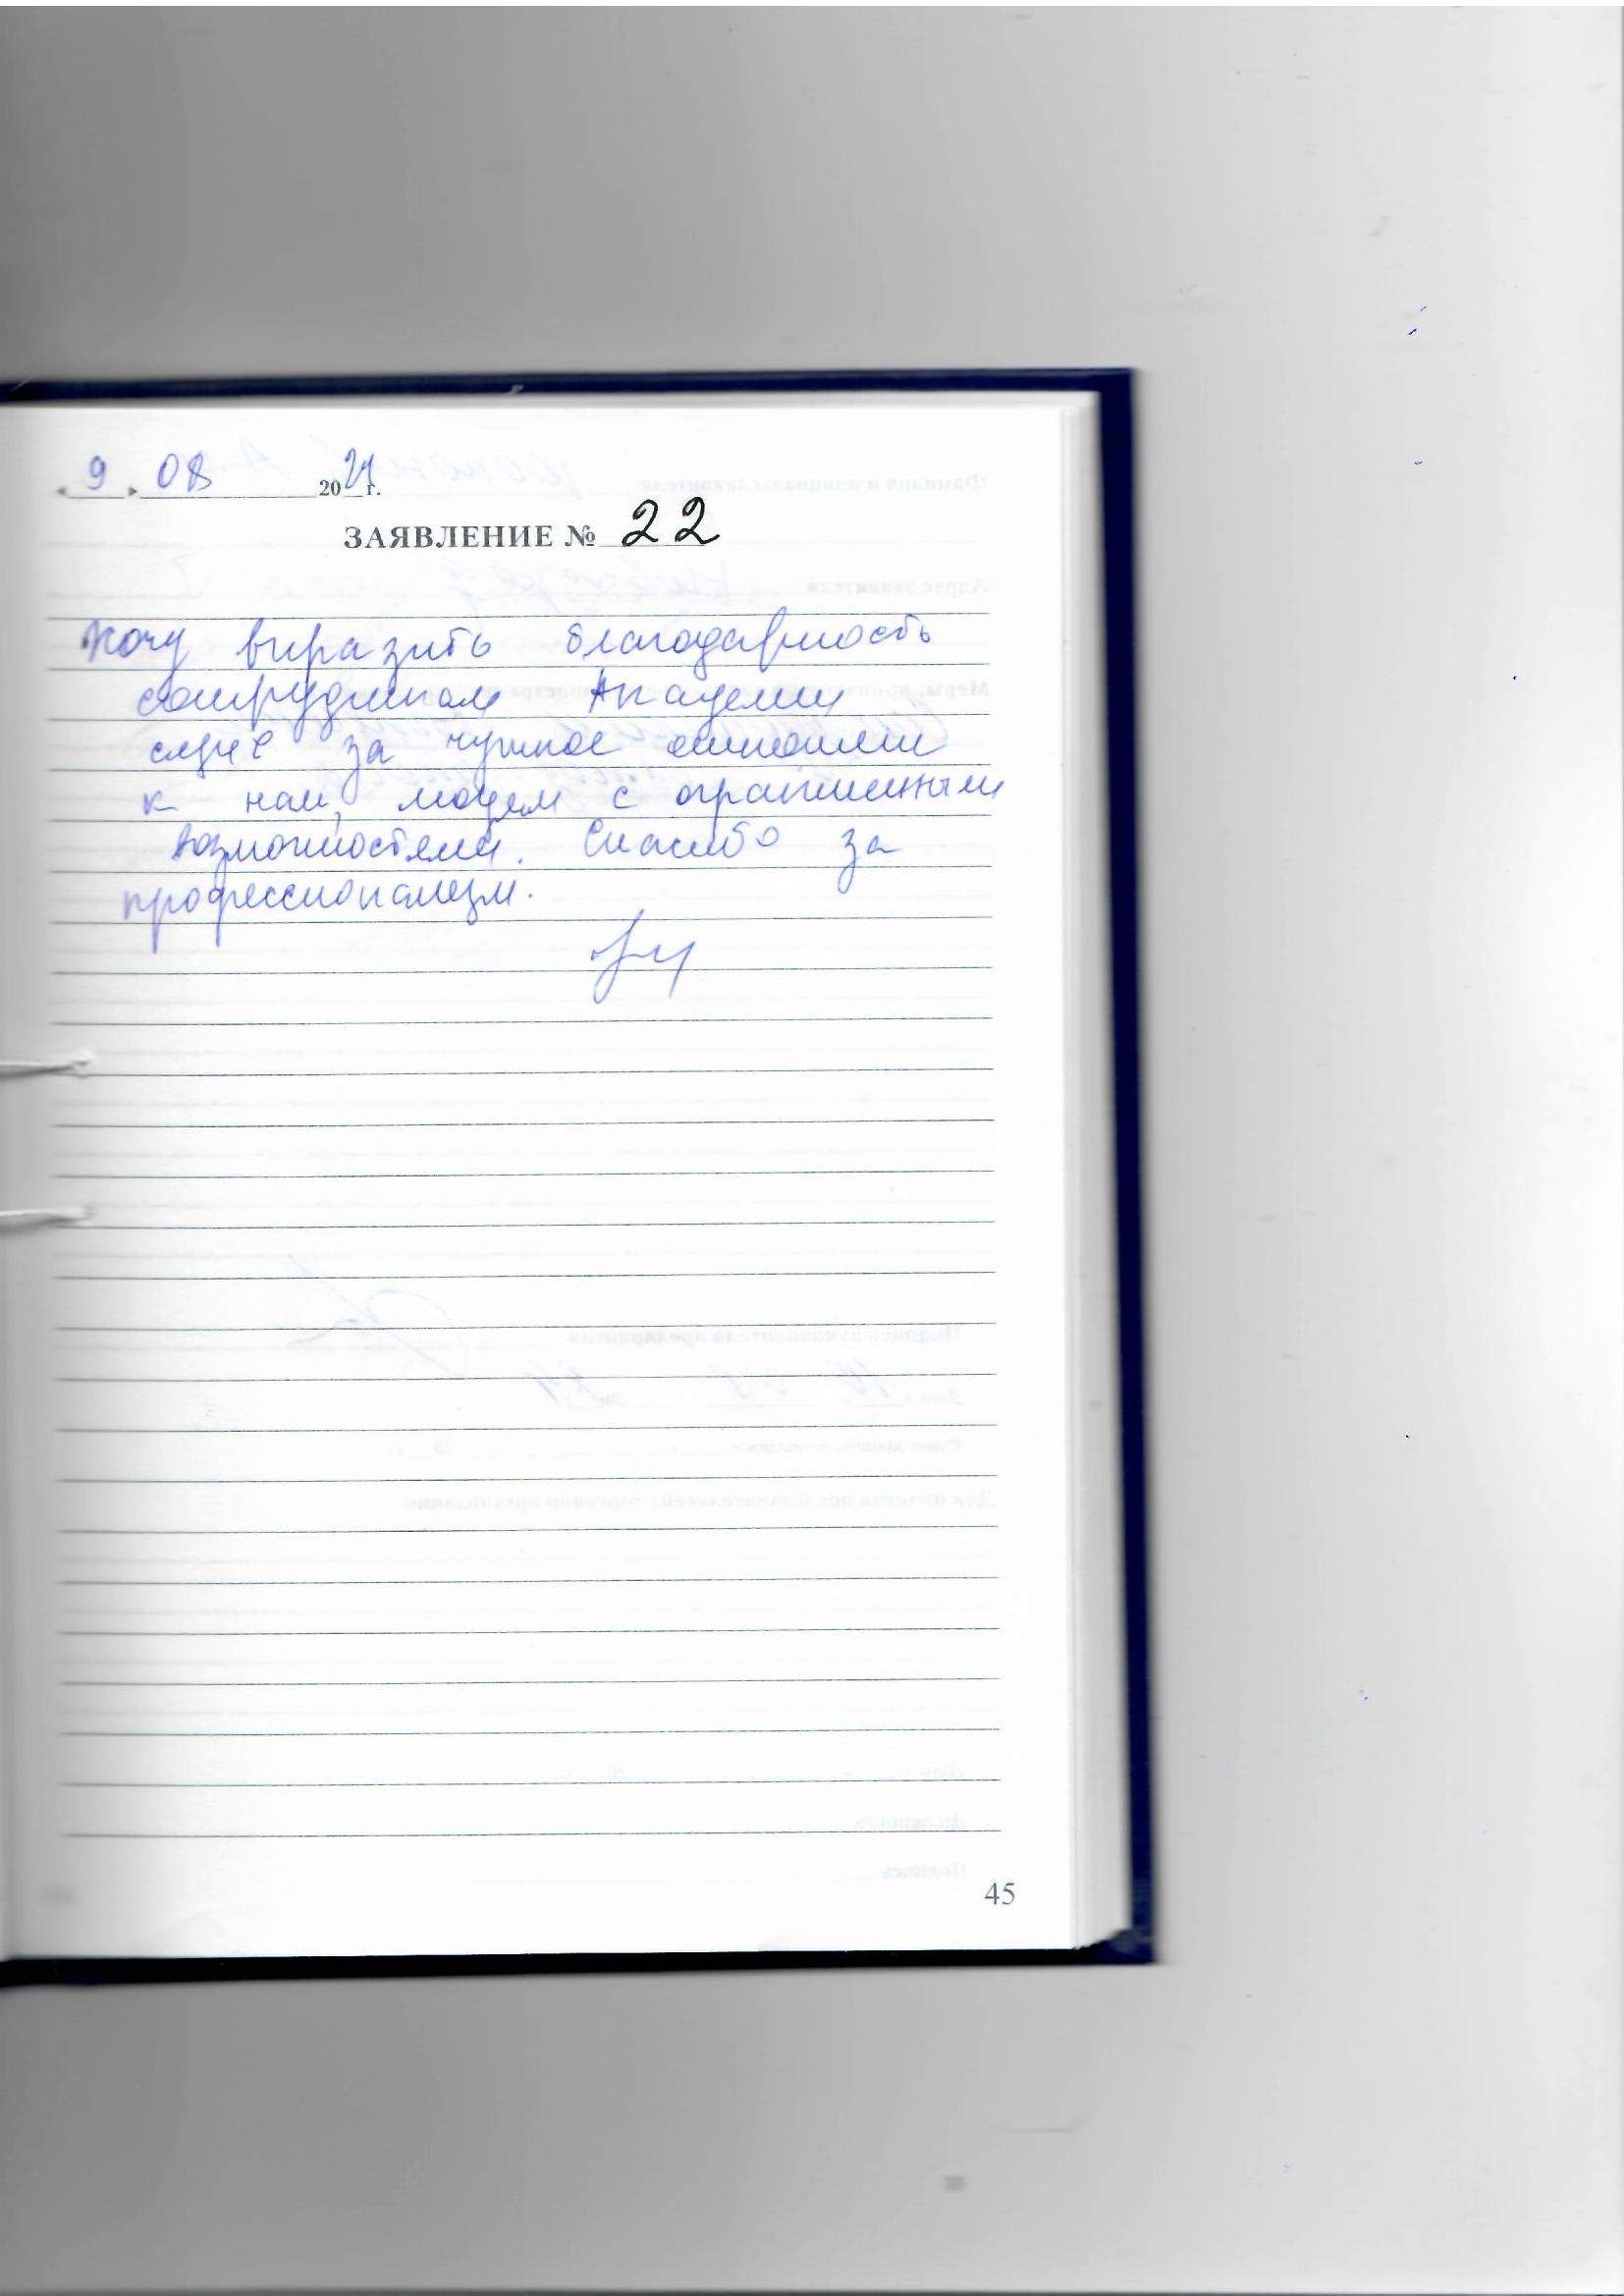 « 9 » 08 2024 г.
ЗАЯВЛЕНИЕ № 22
Хочу выразить благодарность
сотрудникам Академии
слуха за чуткое отношение
к нам, людям с ограниченными
возможностями. Спасибо за
профессионализм.
45